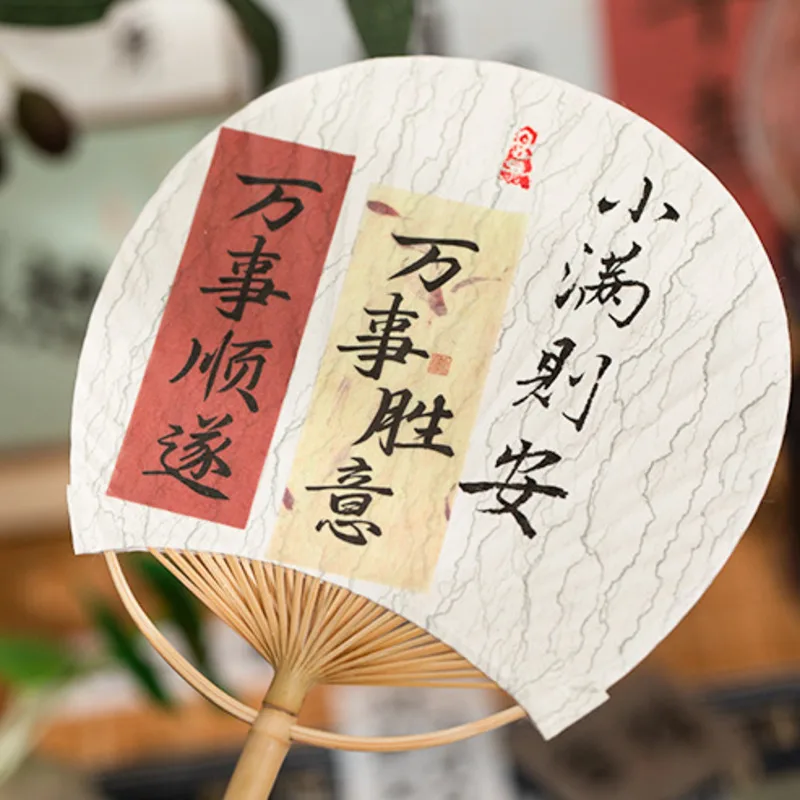 小满則安
万事胜意
万事顺遂